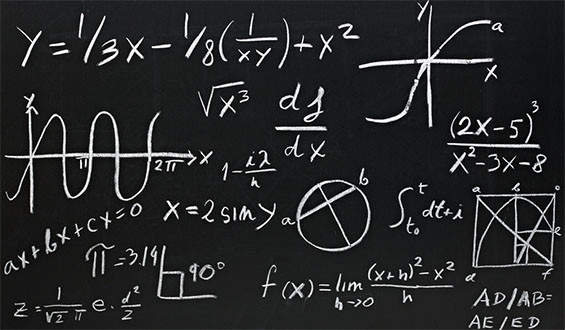 Y = 1/3x - 1/8(1/xy) + x²
y
a
x
√x³
df/dx
(2x-5)³/x²-3x-8
y
π
2π
x
1-iλ/h
x = 2 sin y
a
b
∫t₀ᵗ dt+i
a
b
c
e
d
f
ax+bx+cx=0
π=3.14
90°
f(x) = lim h→0 (x+h)²-x²/h
z = 1/√2 π e · d²/z
AD/AB=
AE/ED